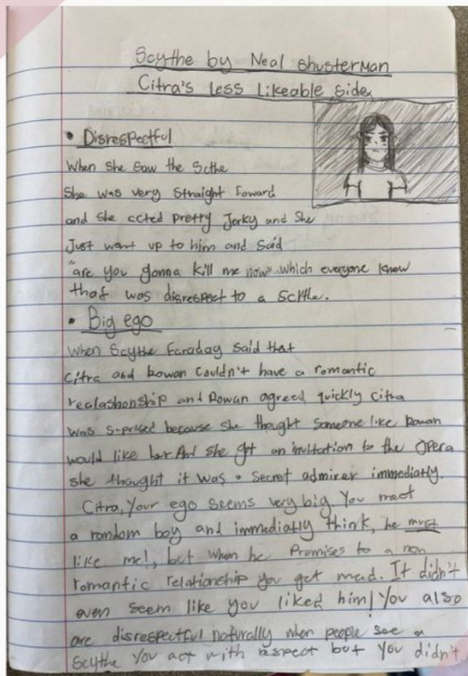 Scythe by Neal Shusterman
Citra's less likeable side
• Disrespectful
When she saw the Scthe
she was very straight foward
and she acted pretty Jerky and she
Just went up to him and said
"are you gonna kill me now" which everyone know
that was disrespect to a scythe.
• Big ego
When Scythe Faraday said that
Citra and Rowan couldn't have a romantic
realashonship and Rowan agreed quickly citra
was suprised because she thought someone like Rowan
would like her. And she got an invitation to the Opera
she thought it was a secret admirer immediatly.
Citra, Your ego seems very big You meet
a random boy and immediatly think, he must
like me!, but when he Promises to a non
romantic relationship you get mad. It didn't
even seem like you liked him! You also
are disrespectful naturally when people see a
Scythe You act with respect but you didn't